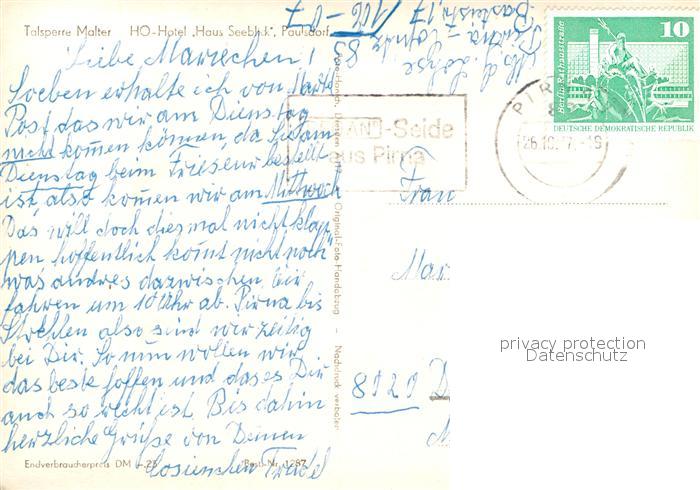 Talsperre Malter HO-Hotel „Haus Seeblick“, Paulsdorf
Liebe Mariechen!
Soeben erhalte ich von Marta
Post das wir am Dienstag
nicht kommen können da sie am
Dienstag beim Friseur bestellt
ist, also kommen wir am Mittwoch
Das will doch diesmal nicht klap-
pen hoffentlich komt nicht noch
was andres dazwischen. Wir
fahren um 10 Uhr ab. Pirna bis
Strehlen also sind wir zeitig
bei Dir. So nun wollen wir
das beste hoffen und das es Dir
auch so recht ist. Bis dahin
herzliche Grüße von Deinen
Trudel
Endverbraucherpreis DM -.25 Best.-Nr. 1287
Original-Foto-Handabzug - Nachdruck verboten
83
17
-Seide
aus Pirna
PIR
26.10.7 -18
10
Berlin, Rathausstraße
DEUTSCHE DEMOKRATISCHE REPUBLIK
Frau
Mar
8020 D
privacy protection
Datenschutz